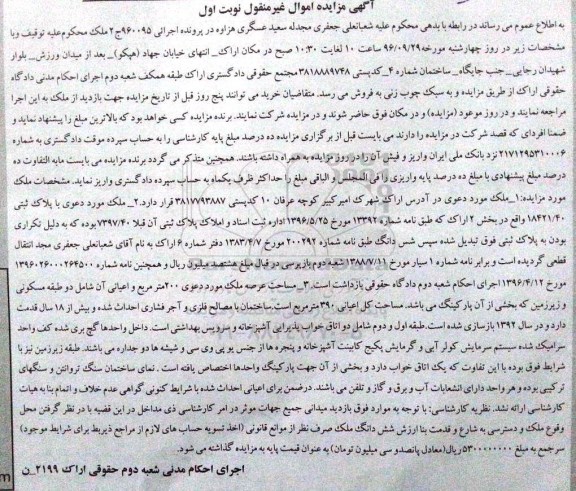 آگهی مزایده اموال غیرمنقول نوبت اول
به اطلاع عموم می رساند در رابطه با بدهی محکوم علیه شعبانعلی جعفری مجدله سعید عسگری هزاوه در پرونده اجرائی ۹۶۰۰۹۵ج۲ ملک محکوم‌علیه توقیف وبا
مشخصات زیر در روز چهارشنبه مورخه۹۶/۰۹/۲۹ ساعت ۱۰ لغایت ۱۰:۳۰ صبح در مکان اراک_ انتهای خیابان جهاد (هپکو)_ بعد از میدان ورزش_ بلوار
شهیدان رجایی_ جنب جایگاه_ ساختمان شماره ۴_ کدپستی ۳۸۱۸۸۸۹۷۴۸ مجتمع حقوقی دادگستری اراک طبقه همکف شعبه دوم اجرای احکام مدنی دادگاه
حقوقی اراک از طریق مزایده و به سبک چوب زنی به فروش می رسد. متقاضیان خرید می توانند پنج روز قبل از تاریخ مزایده جهت بازدید از ملک به این اجرا
مراجعه نمایند و در روز موعود (مزایده) و در مکان فوق حاضر شوند و در مزایده شرکت نمایند. برنده مزایده کسی خواهد بود که بالاترین مبلغ را پیشنهاد نماید و
ضمنا افرادی که قصد شرکت در مزایده را دارند می بایست قبل از برگزاری مزایده ده درصد مبلغ پایه کارشناسی را به حساب سپرده موقت دادگستری به شماره
۲۱۷۱۲۹۵۳۱۰۰۰۶ نزد بانک ملی ایران واریز و فیش آن را در روز مزایده به همراه داشته باشند. همچنین متذکر می گردد برنده مزایده می بایست مابه التفاوت ده
درصد مبلغ پیشنهادی با مبلغ ده درصد پایه واریزی را فی المجلس و الباقی مبلغ را حداکثر ظرف یکماه به حساب سپرده دادگستری واریز نماید. مشخصات ملک
مورد مزایده: ۱_ ملک مورد دعوی در آدرس اراک شهرک امیرکبیر کوچه عرفان ۱۰ کدپستی ۳۸۱۷۷۹۳۸۸۷ قرار دارد. ۲_ ملک مورد دعوی با پلاک ثبتی
۱۸۴۲۱/۴۰ واقع در بخش ۲ اراک که طبق نامه شماره ۱۳۳۹۲ مورخ ۱۳۹۶/۵/۲۵ اداره ثبت اسناد و املاک پلاک ثبتی آن قبلا ۷۳۹۷/۴۰ بوده که به دلیل تکراری
بودن به پلاک ثبتی فوق تبدیل شده سپس شس دانگ طبق نامه شماره ۲۰۰۲۹۲ مورخ ۱۳۸۳/۴/۷ دفتر شماره ۶ اراک به نام آقای شعبانعلی جعفری مجد انتقال
قطعی گردیده است و برابر نامه شماره ۱ سیار مورخ ۱۳۸۸۷/۱۱ شعبه دوم بازپرسی در قبال مبلغ هشتصد میلیون ریال و همچنین نامه شماره ۱۳۹۶۰۲۶۰۰۰۲۶۴۵۰۰
مورخ ۱۳۹۶/۴/۱۲ اجرای احکام شعبه دوم دادگاه حقوقی بازداشت است. ۳_ مساحت عرصه ملک مورد دعوی ۲۰۰متر مربع و اعیانی آن شامل دو طبقه مسکونی
و زیرزمین که بخشی از آن پارکینگ می باشد. مساحت کل اعیانی ۳۹۰مترمربع است. ساختمان با مصالح فلزی و آجر فشاری احداث شده و بیش از ۱۸ سال قدمت
دارد و در سال ۱۳۹۲ بازسازی شده است. طبقه اول و دوم شامل دو اتاق خواب پذیرایی آشپزخانه و سرویس بهداشتی است. داخل واحدها گچ بری شده کف واحد
سرامیک شده سیستم سرمایش کولر آبی و گرمایش پکیج کابینت آشپزخانه و پنجره ها از جنس یو پی وی سی و شیشه ها دو جداره می باشند. طبقه زیرزمین نیز با
شرایط فوق بوده با این تفاوت که یک اتاق خواب دارد و بخشی از آن جهت پارکینگ واحدها اختصاص یافته است . نمای ساختمان سنگ تروانتن و سنگهای
ترکیبی بوده و هر واحد دارای انشعابات آب و برق و گاز و تلفن می باشند. درضمن برای اعیانی احداث شده با شرایط کنونی گواهی عدم خلاف و اتمام بنا به هیات
کارشناسی ارائه نشد. نظریه کارشناسی: با توجه به موارد فوق بازدید میدانی جمیع جهات موثر در امر کارشناسی ذی مداخل در این قضیه با در نظر گرفتن محل
وقوع ملک و دسترسی به شارع و قدمت بنا ارزش شش دانگ ملک صرف نظر از موانع قانونی (اخذ تسویه حساب های لازم از مراجع ذیربط برای شرایط موجود)
سرجمع به مبلغ ۵۳۰۰۰۰۰۰۰۰ ریال(معادل پانصدو سی میلیون تومان) به عنوان قیمت پایه به مزایده گذاشته می شود.
اجرای احکام مدنی شعبه دوم حقوقی اراک ۲۱۹۹_ن